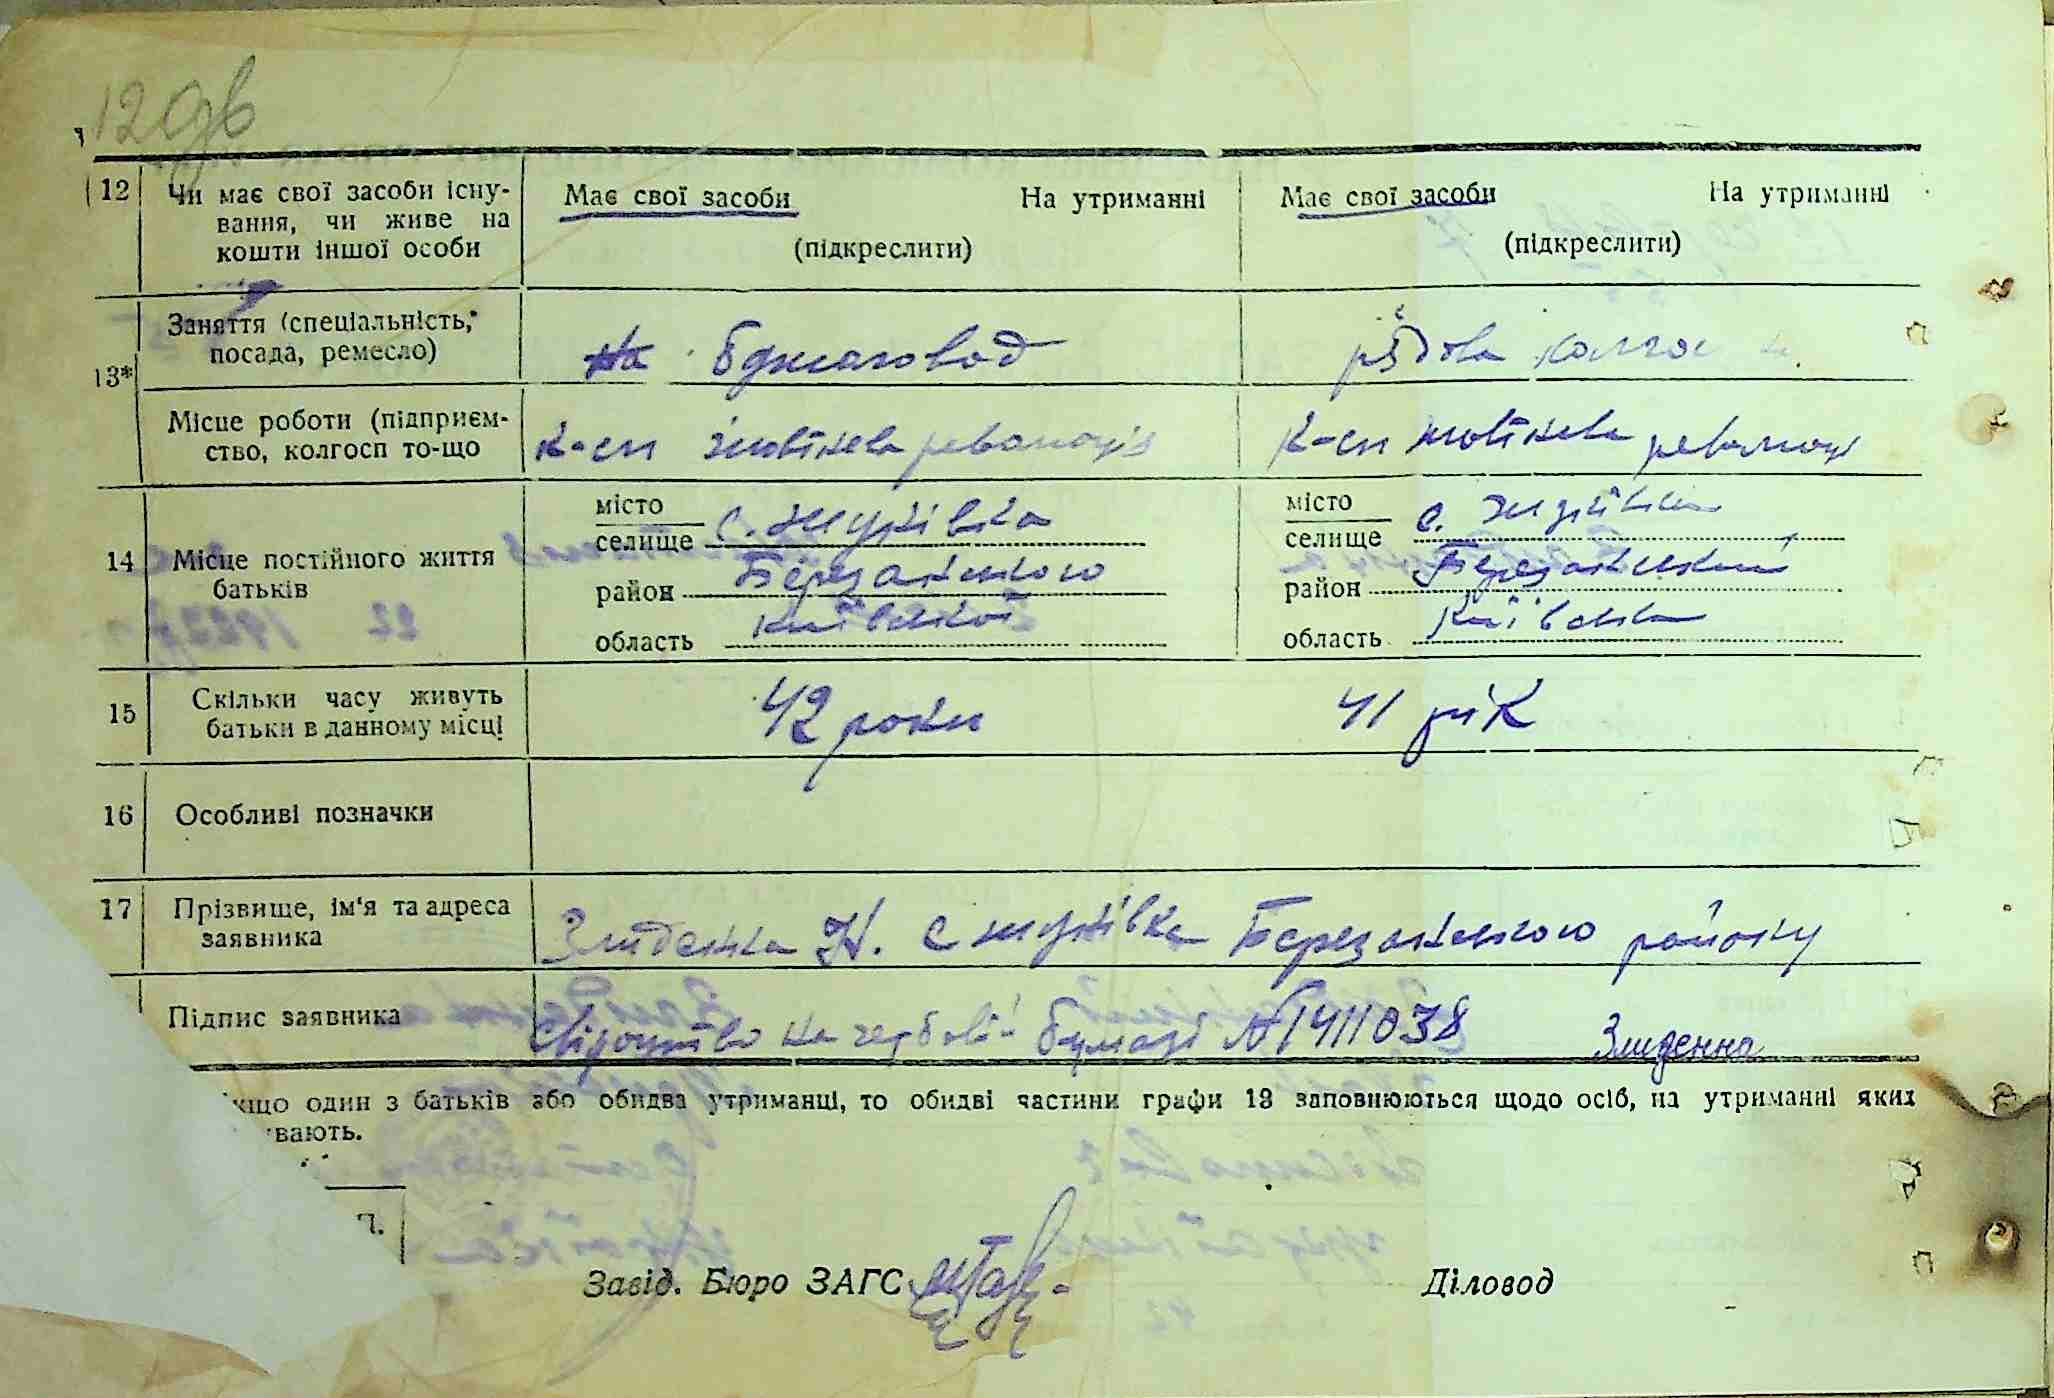 12 Чи має свої засоби існу- Має свої засоби На утриманні Має свої засоби На утриманні
вання, чи живе на
кошти іншої особи (підкреслити) (підкреслити)
13* Заняття (спеціальність,
посада, ремесло) Бджоловод рядова колгос
Місце роботи (підприєм- К-сп жовтнева революція К-сп жовтнева революці
ство, колгосп то-що
14 Місце постійного життя
батьків
місто
селище с. Жуківка
район Березанського
область Київської
місто
селище с. Жуківка
район Березанський
область Київська
15 Скільки часу живуть
батьки в данному місці 42 роки 41 рік
16 Особливі позначки
17 Прізвище, ім'я та адреса
заявника Злиденна Н. с Жуківка Березанського району
Підпис заявника свідоцтво на гербовій бумазі № 1411038 Злиденна
кщо один з батьків або обидва утриманці, то обидві частини графи 13 заповнюються щодо осіб, на утриманні яких
вають.
П.
Завід. Бюро ЗАГС Діловод